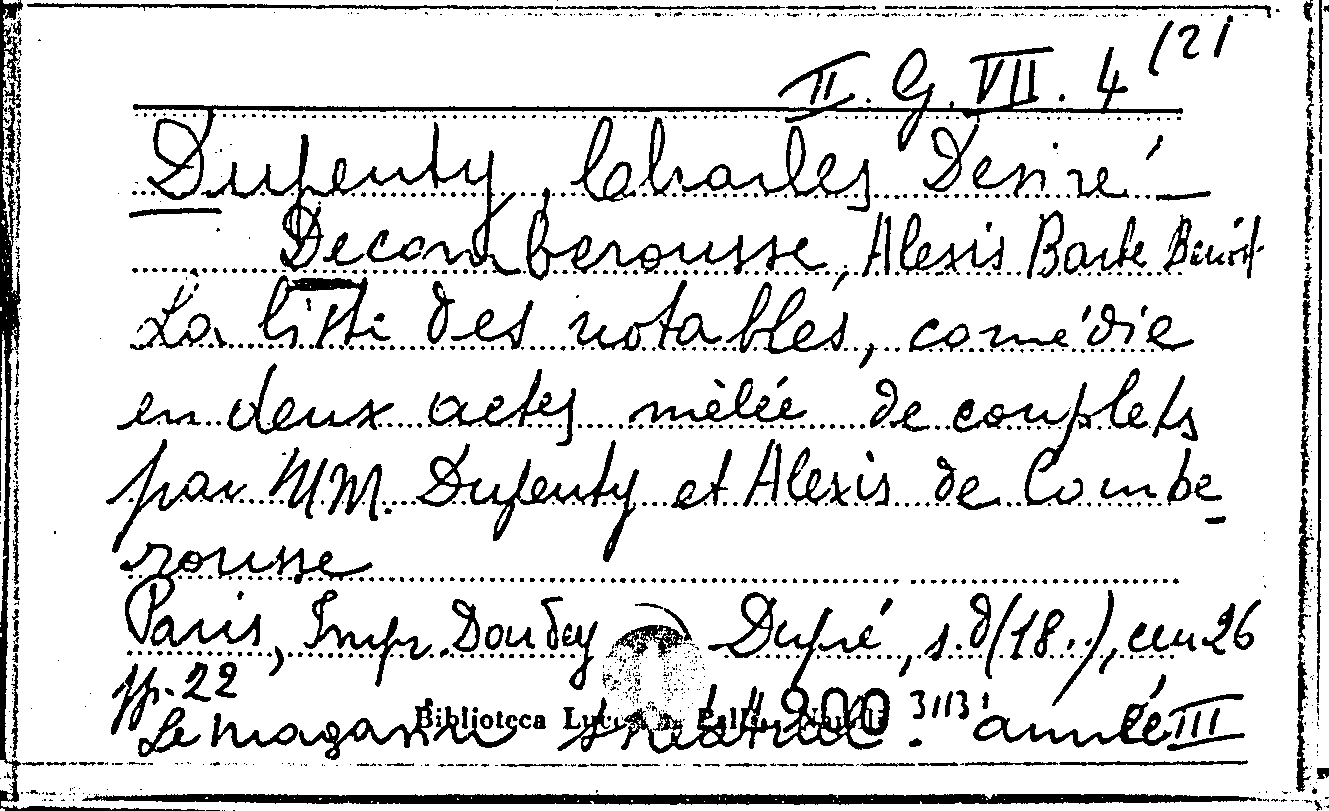 II. G. VII. 4 (21
Dupeuty, Charles Desiré
Decomberousse, Alexis Barbe Benoit
La liste des notables, comédie
en deux actes mèlée de couplets
par MM. Dupeuty et Alexis de Combe
rousse
Paris, Impr. Dondey Dupré, s.d (18..), cm 26
pp. 22
Le magasin théâtral. 3113 année III
Biblioteca